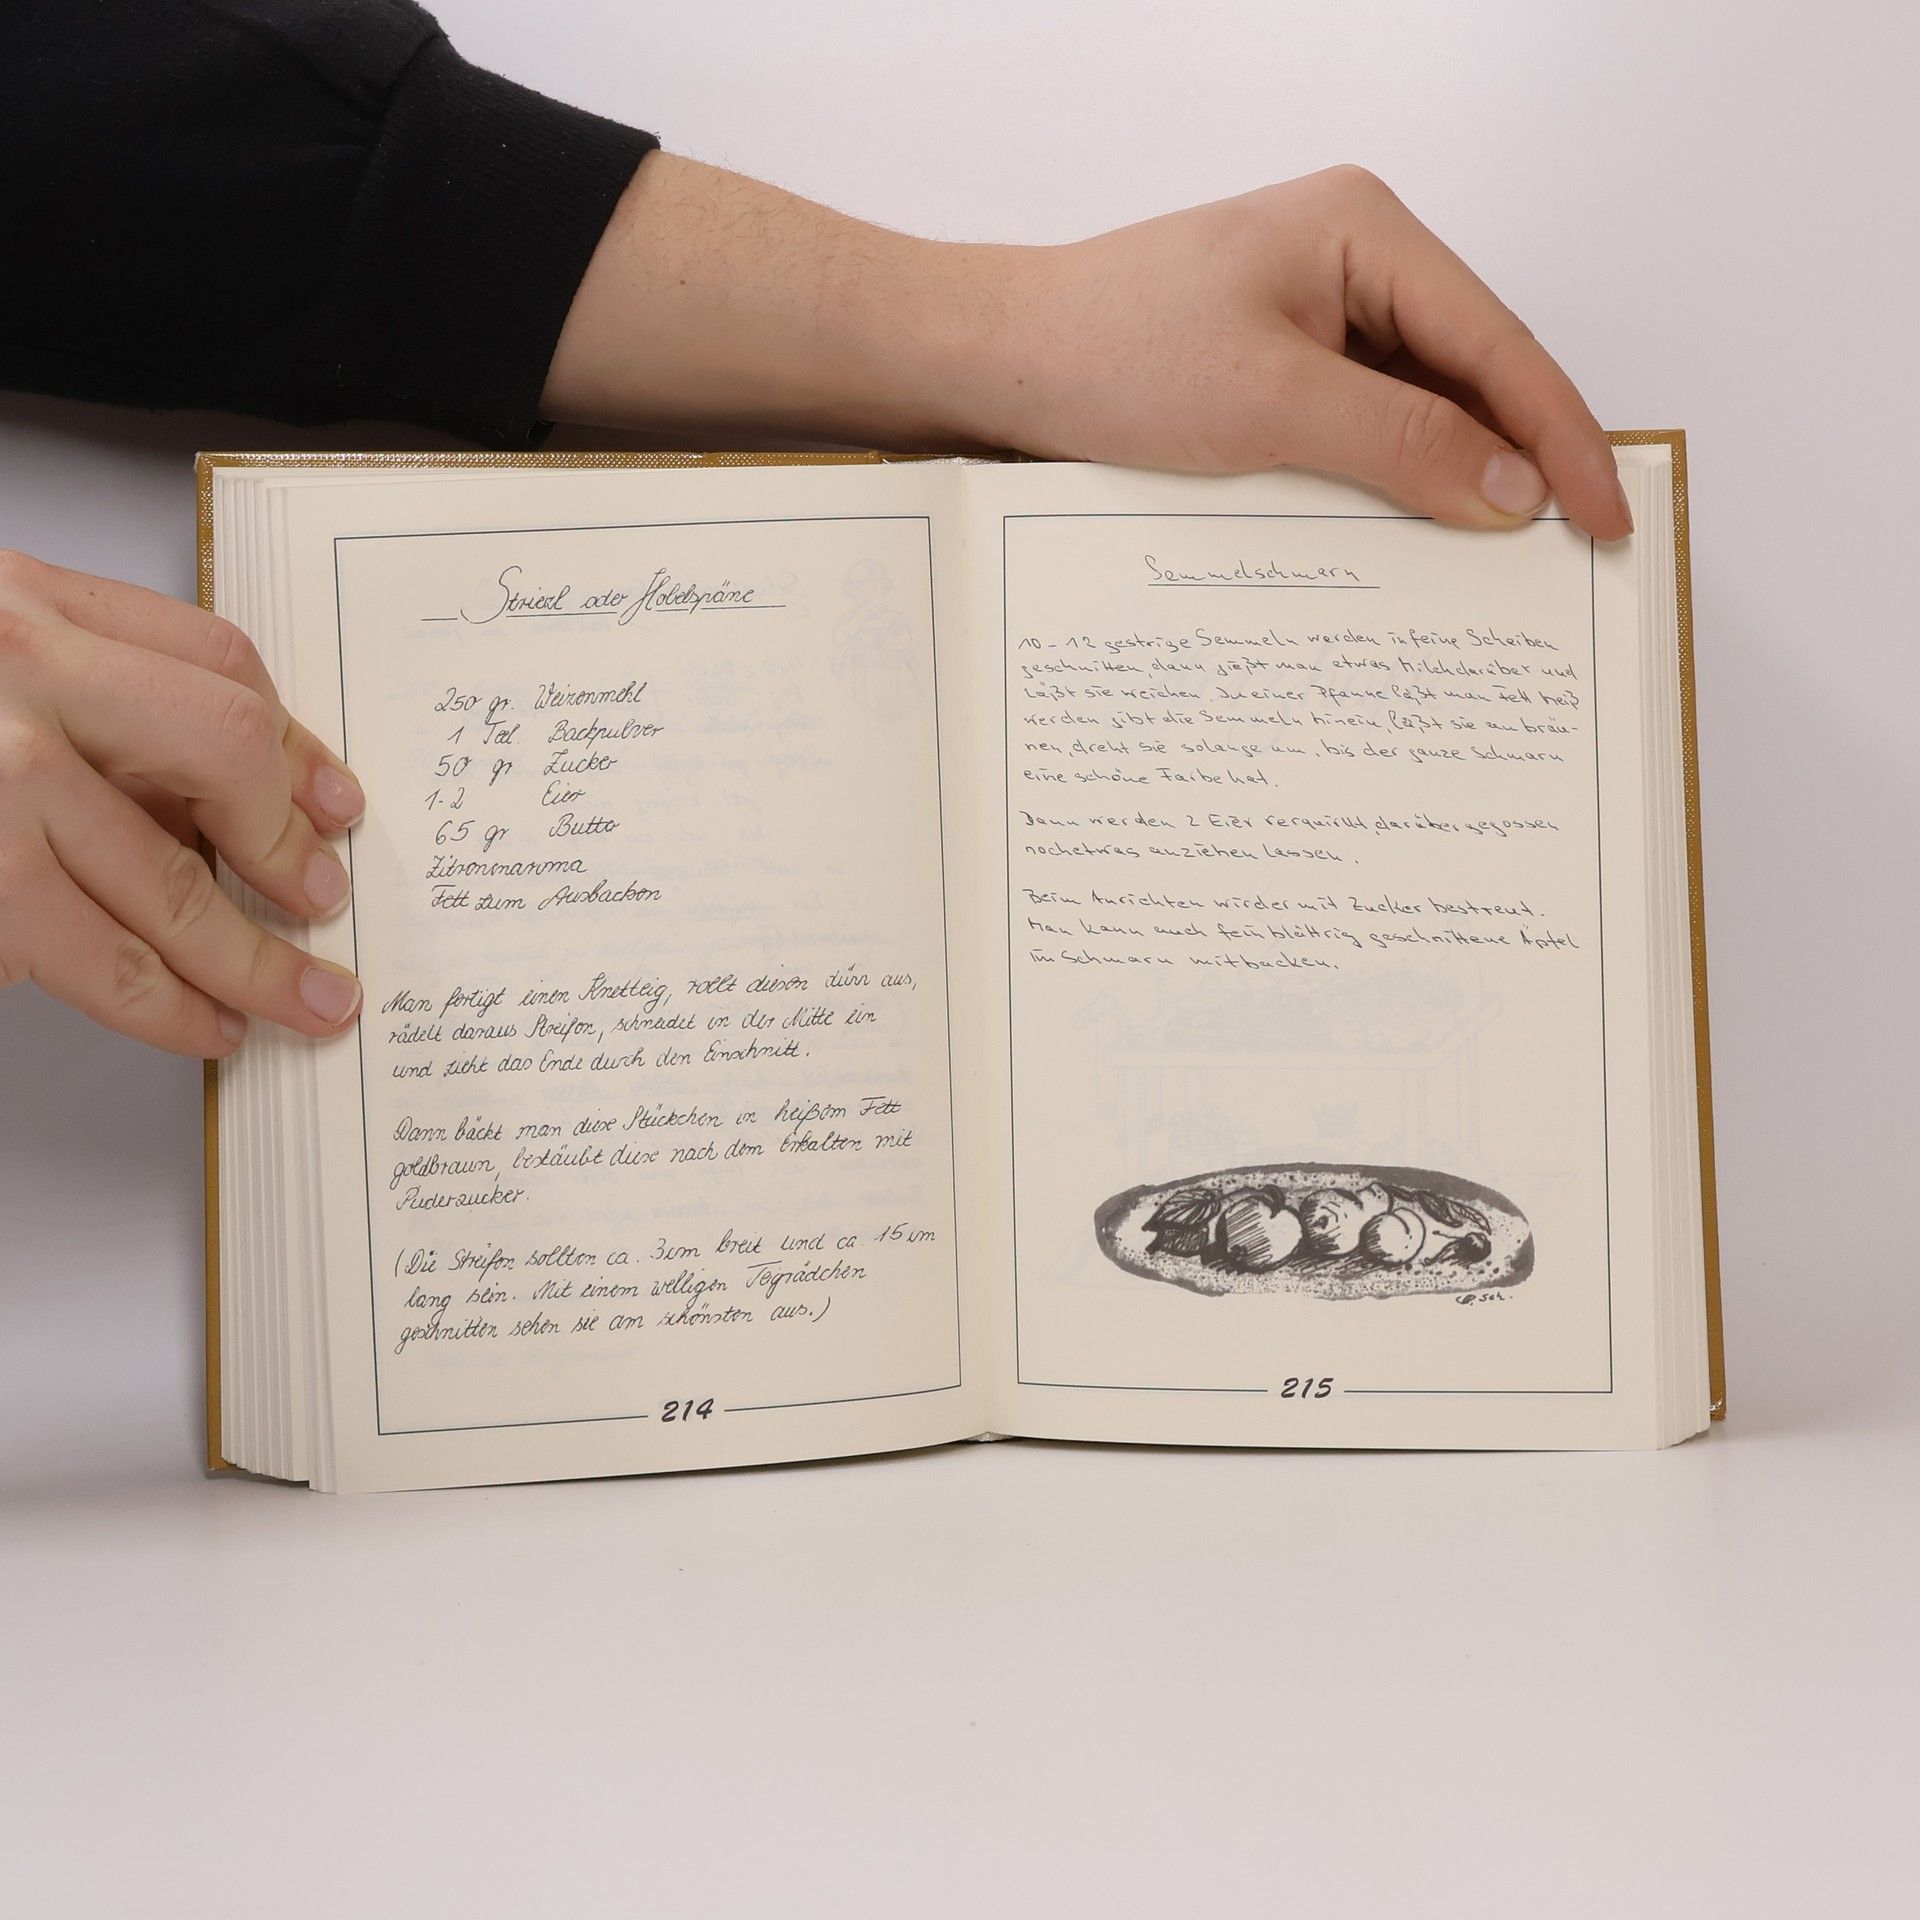 Strierl oder Hobelspäne
250 gr. Weizenmehl
1 Teel. Backpulver
50 gr Zucker
1-2 Eier
65 gr Butter
Zitronenaroma
Fett zum Ausbacken
Man fertigt einen Knetteig, rollt diesen dünn aus,
rädelt daraus Streifen, schneidet in der Mitte ein
und zieht das Ende durch den Einschnitt.
Dann bäckt man diese Stückchen in heißem Fett
goldbraun, bestäubt diese nach dem Erkalten mit
Puderzucker.
(Die Streifen sollten ca. 3cm breit und ca. 15 cm
lang sein. Mit einem welligen Teigrädchen
geschnitten sehen sie am schönsten aus.)
214
Semmelschmarn
10-12 gestrige Semmeln werden in feine Scheiben
geschnitten, dann gießt man etwas Milch darüber und
läßt sie weichen. In einer Pfanne läßt man Fett heiß
werden gibt die Semmeln hinein, läßt sie anbräu-
nen, dreht sie solange um, bis der ganze Schmarn
eine schöne Farbe hat.
Dann werden 2 Eier verquirlt, darüber gegossen
noch etwas anziehen lassen.
Beim Anrichten wird er mit Zucker bestreut.
Man kann auch feinblättrig geschnittene Äpfel
im Schmarn mitbacken.
Sch.
215